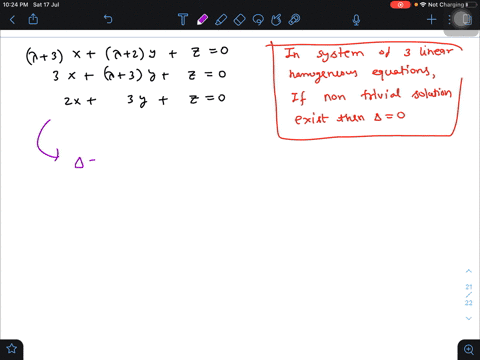 10:24 PM Sat 17 Jul
Not Charging
(λ+3) x + (λ+2) y + z = 0
3 x + (λ+3) y + z = 0
2x + 3y + z = 0
Δ =
In system of 3 linear
homogenous equations,
If non trivial solution
exist then Δ = 0
21
/
22